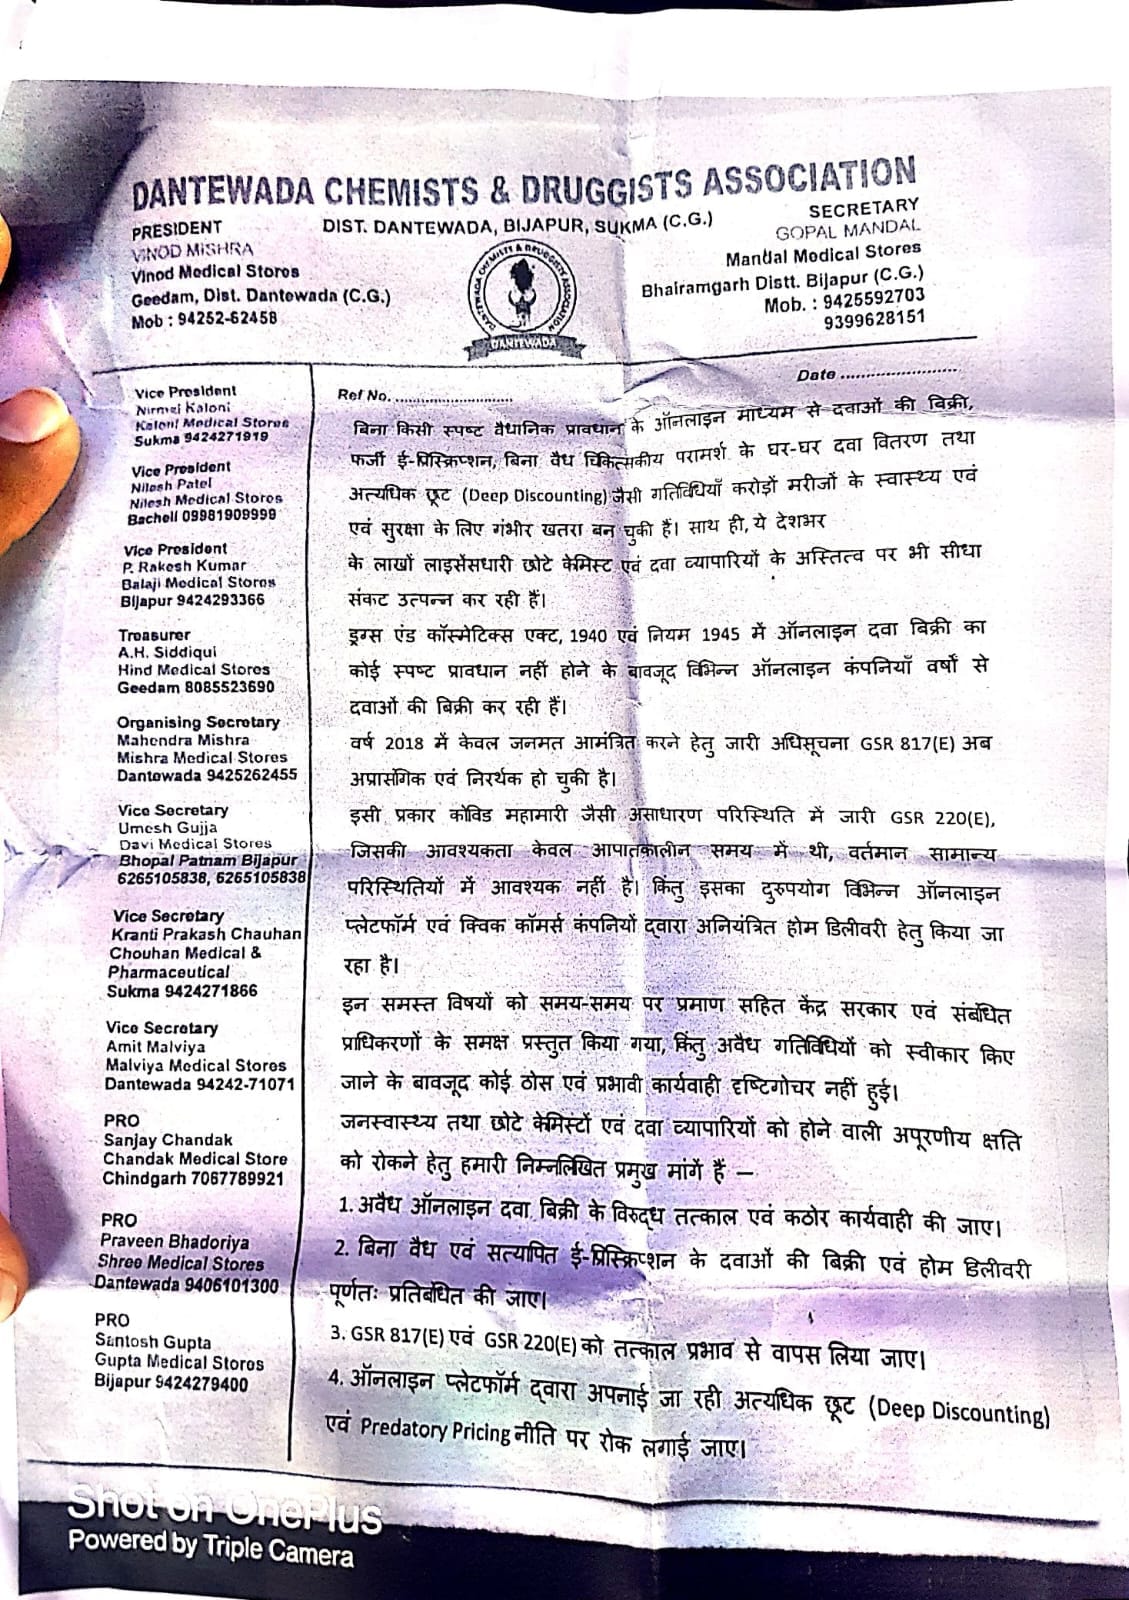 DANTEWADA CHEMISTS & DRUGGISTS ASSOCIATION
DIST. DANTEWADA, BIJAPUR, SUKMA (C.G.)
PRESIDENT
VINOD MISHRA
Vinod Medical Stores
Geedam, Dist. Dantewada (C.G.)
Mob : 94252-62458
SECRETARY
GOPAL MANDAL
Mandal Medical Stores
Bhairamgarh Distt. Bijapur (C.G.)
Mob. : 9425592703
9399628151
DANTEWADA CHEMISTS & DRUGGISTS ASSOCIATION
DANTEWADA
Vice President
Nirmal Kaloni
Kaloni Medical Stores
Sukma 9424271919
Vice President
Nilesh Patel
Nilesh Medical Stores
Bacheli 09981909999
Vice President
P. Rakesh Kumar
Balaji Medical Stores
Bijapur 9424293366
Treasurer
A.H. Siddiqui
Hind Medical Stores
Geedam 8085523690
Organising Secretary
Mahendra Mishra
Mishra Medical Stores
Dantewada 9425262455
Vice Secretary
Umesh Gujja
Davi Medical Stores
Bhopal Patnam Bijapur
6265105838, 6265105838
Vice Secretary
Kranti Prakash Chauhan
Chouhan Medical &
Pharmaceutical
Sukma 9424271866
Vice Secretary
Amit Malviya
Malviya Medical Stores
Dantewada 94242-71071
PRO
Sanjay Chandak
Chandak Medical Store
Chindgarh 7067789921
PRO
Praveen Bhadoriya
Shree Medical Stores
Dantewada 9406101300
PRO
Santosh Gupta
Gupta Medical Stores
Bijapur 9424279400
Ref No. ........................
Date ........................
बिना किसी स्पष्ट वैधानिक प्रावधान के ऑनलाइन माध्यम से दवाओं की बिक्री,
फर्जी ई-प्रिस्क्रिप्शन, बिना वैध चिकित्सकीय परामर्श के घर-घर दवा वितरण तथा
अत्यधिक छूट (Deep Discounting) जैसी गतिविधियाँ करोड़ों मरीजों के स्वास्थ्य एवं
एवं सुरक्षा के लिए गंभीर खतरा बन चुकी हैं। साथ ही, ये देशभर
के लाखों लाइसेंसधारी छोटे केमिस्ट एवं दवा व्यापारियों के अस्तित्व पर भी सीधा
संकट उत्पन्न कर रही हैं।
ड्रग्स एंड कॉस्मेटिक्स एक्ट, 1940 एवं नियम 1945 में ऑनलाइन दवा बिक्री का
कोई स्पष्ट प्रावधान नहीं होने के बावजूद विभिन्न ऑनलाइन कंपनियाँ वर्षों से
दवाओं की बिक्री कर रही हैं।
वर्ष 2018 में केवल जनमत आमंत्रित करने हेतु जारी अधिसूचना GSR 817(E) अब
अप्रासंगिक एवं निरर्थक हो चुकी है।
इसी प्रकार कोविड महामारी जैसी असाधारण परिस्थिति में जारी GSR 220(E),
जिसकी आवश्यकता केवल आपातकालीन समय में थी, वर्तमान सामान्य
परिस्थितियों में आवश्यक नहीं है। किंतु इसका दुरुपयोग विभिन्न ऑनलाइन
प्लेटफॉर्म एवं क्विक कॉमर्स कंपनियों द्वारा अनियंत्रित होम डिलीवरी हेतु किया जा
रहा है।
इन समस्त विषयों को समय-समय पर प्रमाण सहित केंद्र सरकार एवं संबंधित
प्राधिकरणों के समक्ष प्रस्तुत किया गया, किंतु अवैध गतिविधियों को स्वीकार किए
जाने के बावजूद कोई ठोस एवं प्रभावी कार्यवाही दृष्टिगोचर नहीं हुई।
जनस्वास्थ्य तथा छोटे केमिस्टों एवं दवा व्यापारियों को होने वाली अपूरणीय क्षति
को रोकने हेतु हमारी निम्नलिखित प्रमुख मांगें हैं —
1. अवैध ऑनलाइन दवा बिक्री के विरुद्ध तत्काल एवं कठोर कार्यवाही की जाए।
2. बिना वैध एवं सत्यापित ई-प्रिस्क्रिप्शन के दवाओं की बिक्री एवं होम डिलीवरी
पूर्णतः प्रतिबंधित की जाए।
3. GSR 817(E) एवं GSR 220(E) को तत्काल प्रभाव से वापस लिया जाए।
4. ऑनलाइन प्लेटफॉर्म द्वारा अपनाई जा रही अत्यधिक छूट (Deep Discounting)
एवं Predatory Pricing नीति पर रोक लगाई जाए।
Shot on OnePlus
Powered by Triple Camera